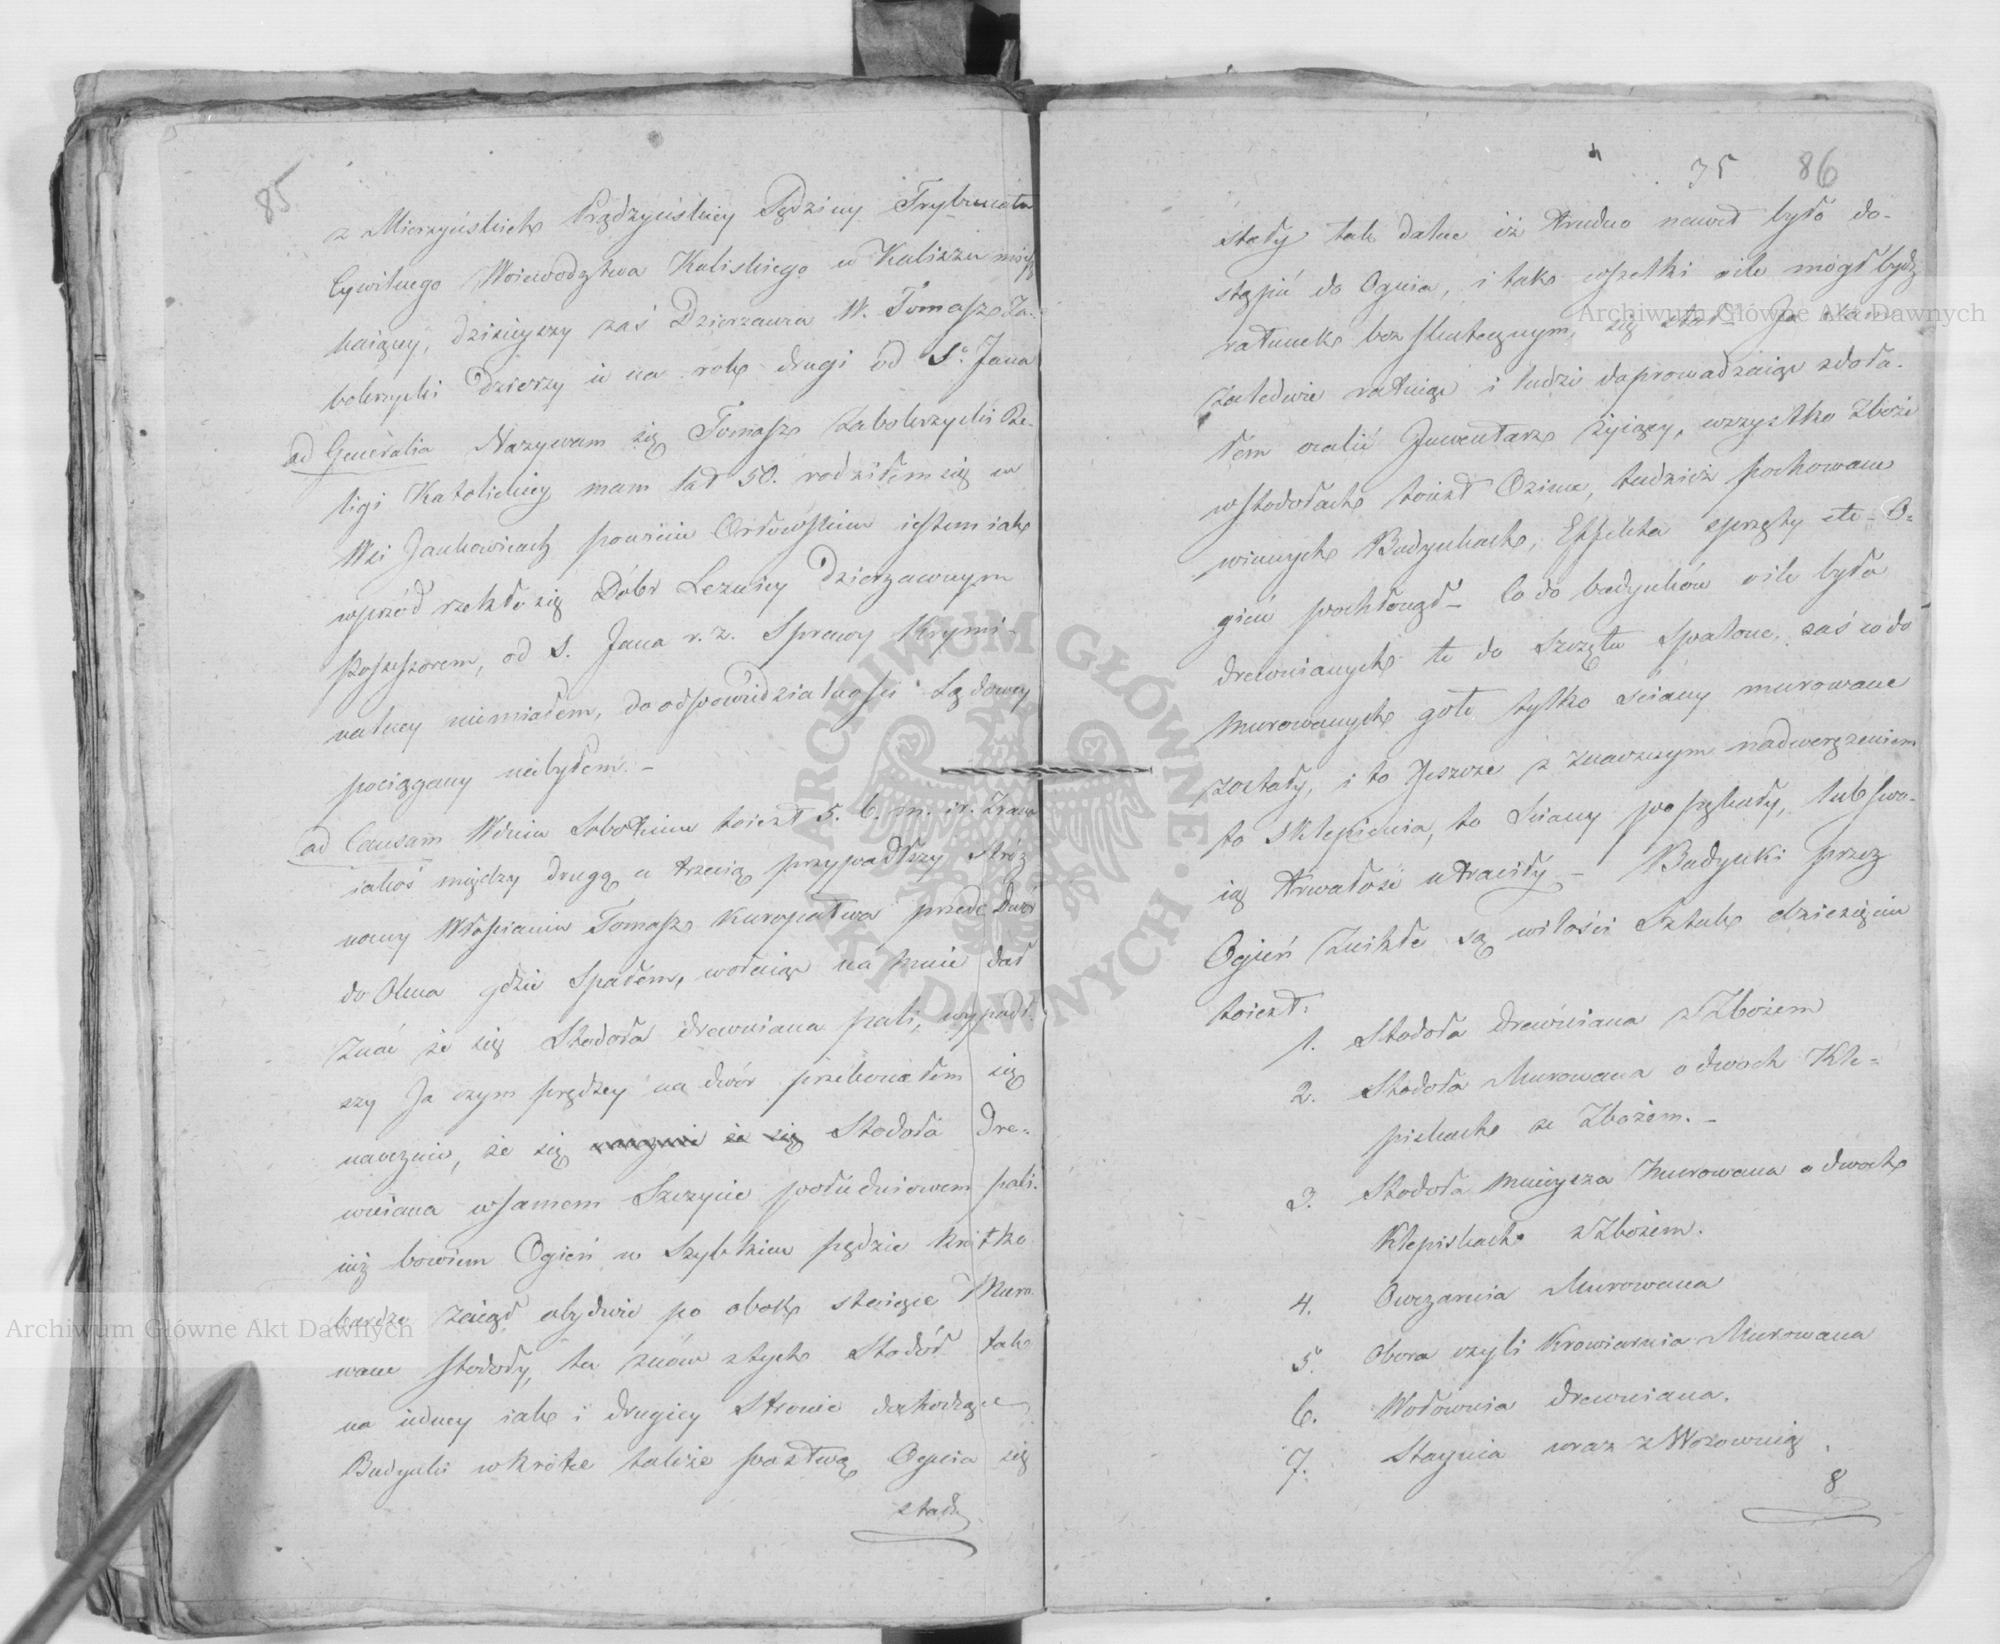 85
z Mierzyńskich Prądzyńskiey Sędziny Trybunału
Cywilnego Woiewodztwa Kaliskiego w Kaliszu miesz
kaiącey, dzisieyszy zaś Dzierzawca W. Tomasz Za-
bokrzycki Dzierzy ie na rok drugi od S. Jana
ad Generalia Nazywam się Tomasz Zabokrzycki Re-
ligi Katolickiey mam lat 50. rodziłem się w
Wsi Jankowicach powiecie Orłowskim iestem iak
wprzód rzekło się Dóbr Leznicy Dzierzawnym
Possessorem, od S. Jana r. z. Sprawy Krymi-
nalney niemiałem, do odpowiedzialności Sądowey
pociągany niebyłem. -
ad Causam W dniu Sobotnim toiest 5. b. m. i r. Zrana
iakoś między drugą a trzecią przypadłszy stróż
nocny Włościanin Tomasz Kuropatwa przed Dwór
do Okna gdzie Spałem, wołaiąc na mnie dał
znać że się Stodoła drewniana pali, wypadł-
szy Ja czym prędzey na dwór przekonałem się
naocznie, że się Stodoła Dre-
wniana w samem Szczycie południowem pali.
iuż bowiem Ogień w Szybkim pędzie krótko
bardzo zaiął obydwie po obok stoiące Muro
wane stodoły, ta znów z tych Stodół tak
na iedney iak i drugiey Stronie dochodzące
Budynki w krótce także pastwą Ognia się
stały
35 86
stały tak dalece iż trudno nawet było do-
stąpić do Ognia, i tak wszelki ile mógł bydź
ratunek bez skutecznym się stał - Ja sam
zaledwie ratuiąc i ludzi doprowadzaiąc zdoła-
łem ocalić Inwentarz żyiący, wszystko Zboże
w stodołach toiest Ozime, tudzież pochowane
w innych Budynkach, Effekta sprzęty etc - O-
gień pochłonął - Co do budynków ile było
drewnianych te do Szczętu Spalone, zaś co do
Murowanych gołe tylko ściany murowane
zostały, i to Jeszcze z znacznym nadwerężeniem
to Sklepienia, to Sciany popękały, lub swo-
ią trwałość utraciły - Budynki przez
Ogień znikłe są w ilości Sztuk dziesięciu
toiest.
1. Stodoła Drewniana z Zbożem
2. Stodoła Murowana o dwoch Kle-
piskach ze Zbożem. -
3. Stodoła mnieysza Murowana o dwoch
Klepiskach z Zbożem.
4. Owczarnia Murowana
5. Obora czyli Krowiarnia Murowana
6. Wołownia drewniana.
7. Staynia wraz z Wozownią
8
Archiwum Główne Akt Dawnych
Archiwum Główne Akt Dawnych
ARCHIWUM GŁÓWNE AKT DAWNYCH